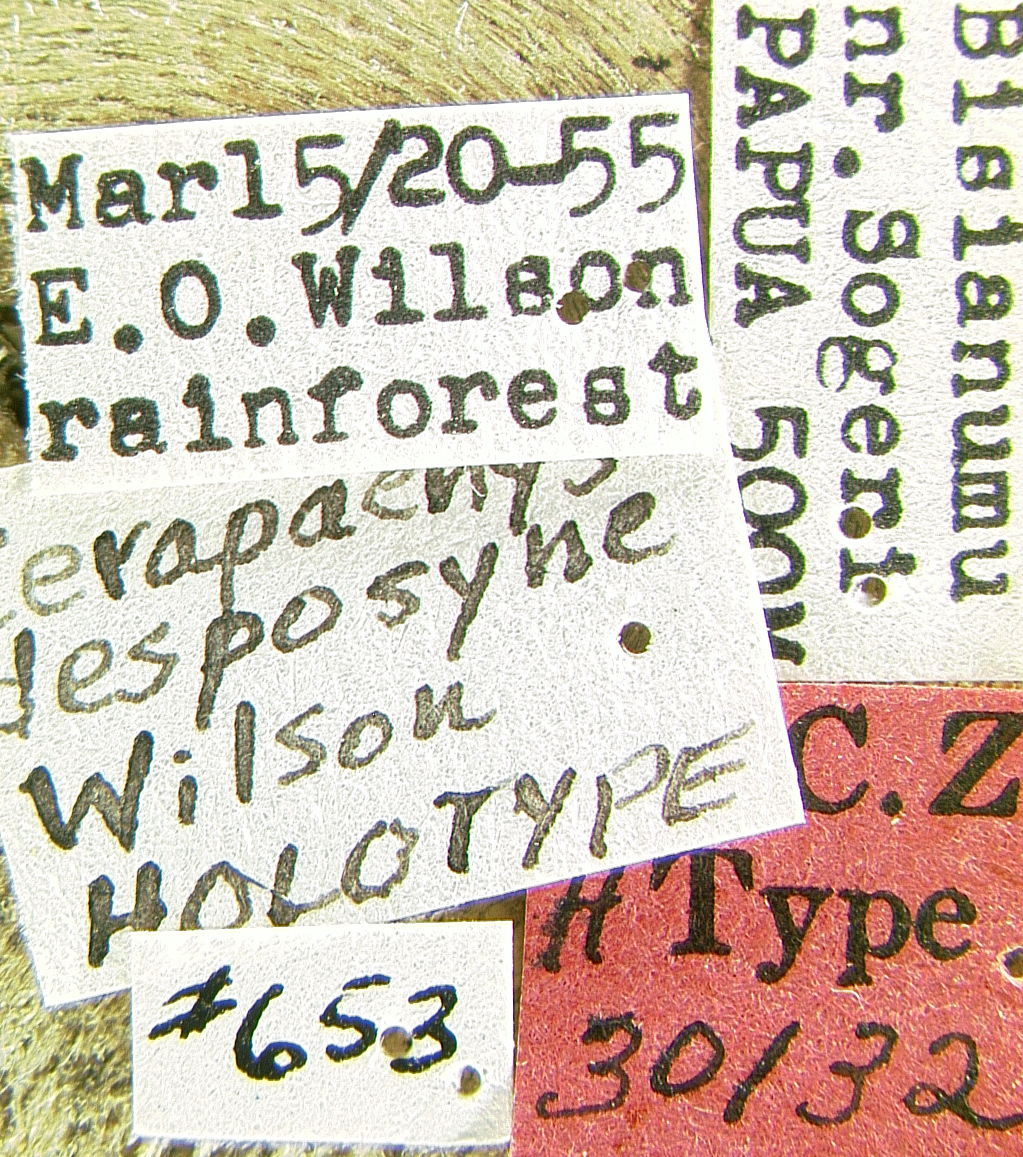 Mar15/20-55
E.O.Wilson
rainforest
erapachys
desposyne
Wilson
HOLOTYPE
#653
Bisianumu
nr. Sogeri
PAPUA 500M
C.Z
H Type
30132